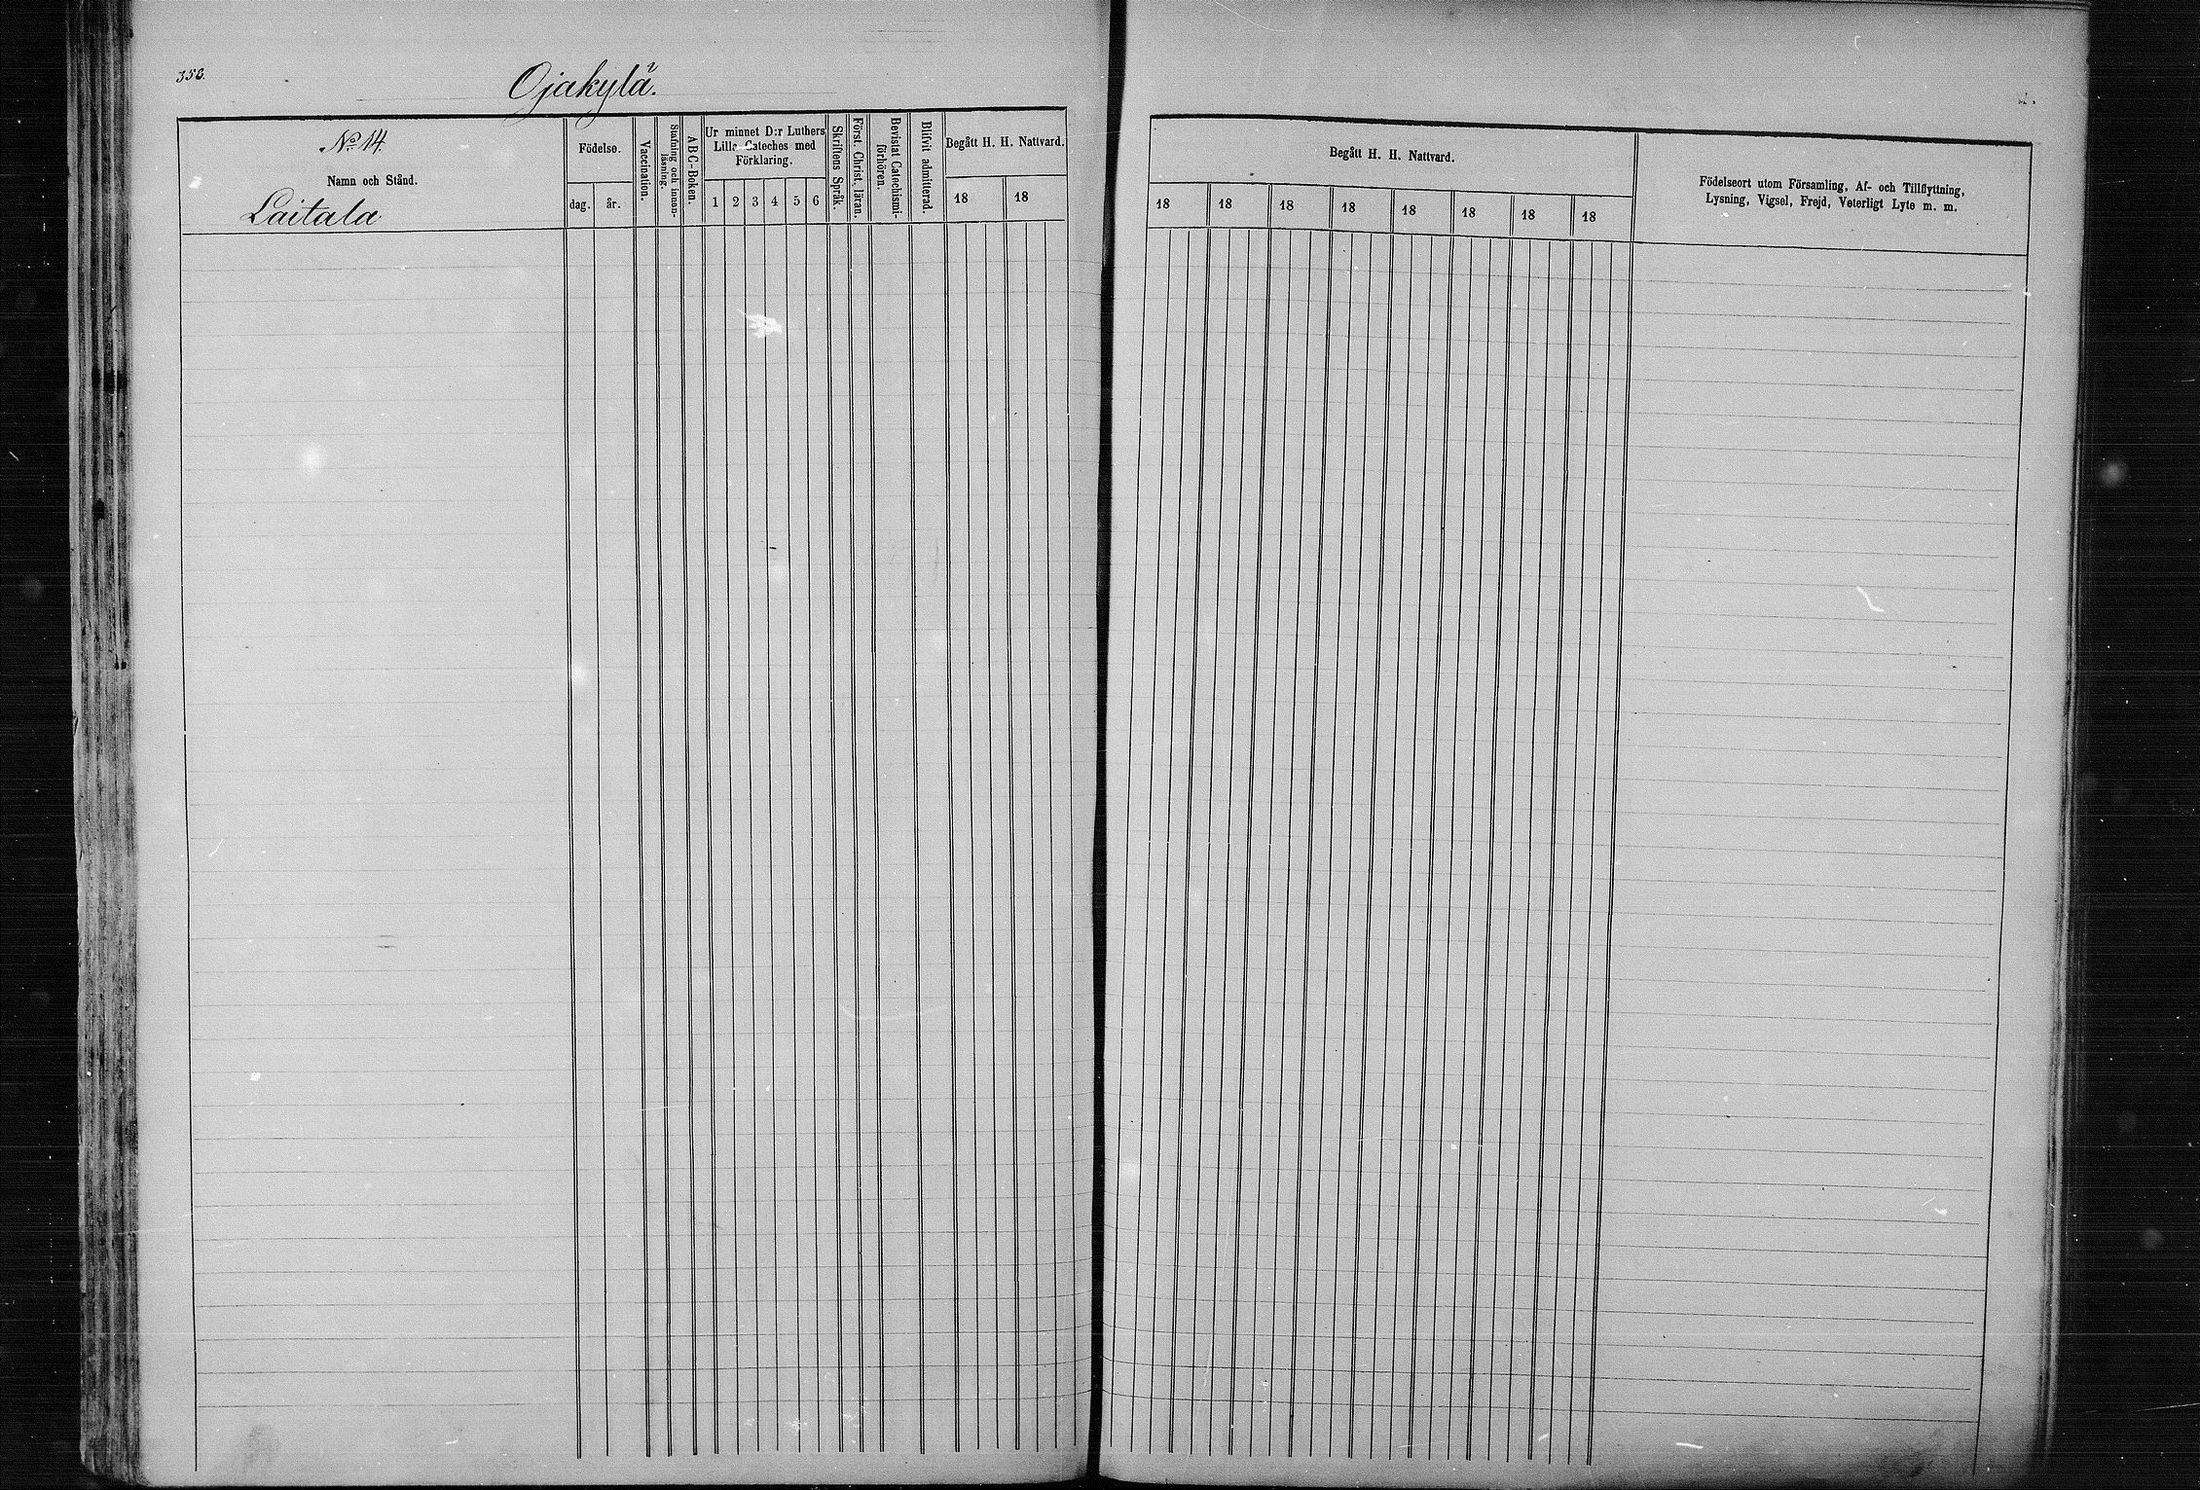 358.
Ojakylä.
No. 14
Namn och Stånd.
Laitala
Födelse.
dag.
år.
Vaccination.
Stafning och innan-
läsning.
ABC-Boken.
Ur minnet D:r Luthers
Lilla Cateches med
Förklaring.
1 2 3 4 5 6
Skriftens Språk.
Först. Christ. läran.
Bevistat Catechismi-
förhören.
Blifvit admitterad.
Begått H. H. Nattvard.
18 18
Begått H. H. Nattvard.
18 18 18 18 18 18 18 18
Födelseort utom Församling, Af- och Tillflyttning,
Lysning, Vigsel, Frejd, Veterligt Lyte m. m.